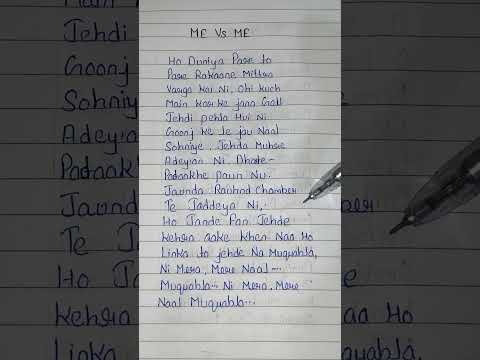 ME Vs ME
Ho Duniya Pare to
Pare Rakaane Mithra
Varga Koi Ni, Ohi kuch
Main Kar ke jana Gall
Jehdi pehla Hui Ni
Goonj ke le jau Naal
Sohniye, Jehda Muhre
Adeyan Ni, Dhate-
Padaakhe paun Nu.
Jaunda Raunod Chamber
Te Taddeya Ni,.
Ho Jande Pan Jehde
Kehra aake khan Naa Ho
Linka to jehde Na Muquabla,
Ni Mera, Mere Naal ...
Muquabla... Ni Mera, Mere
Naal Muquabla...